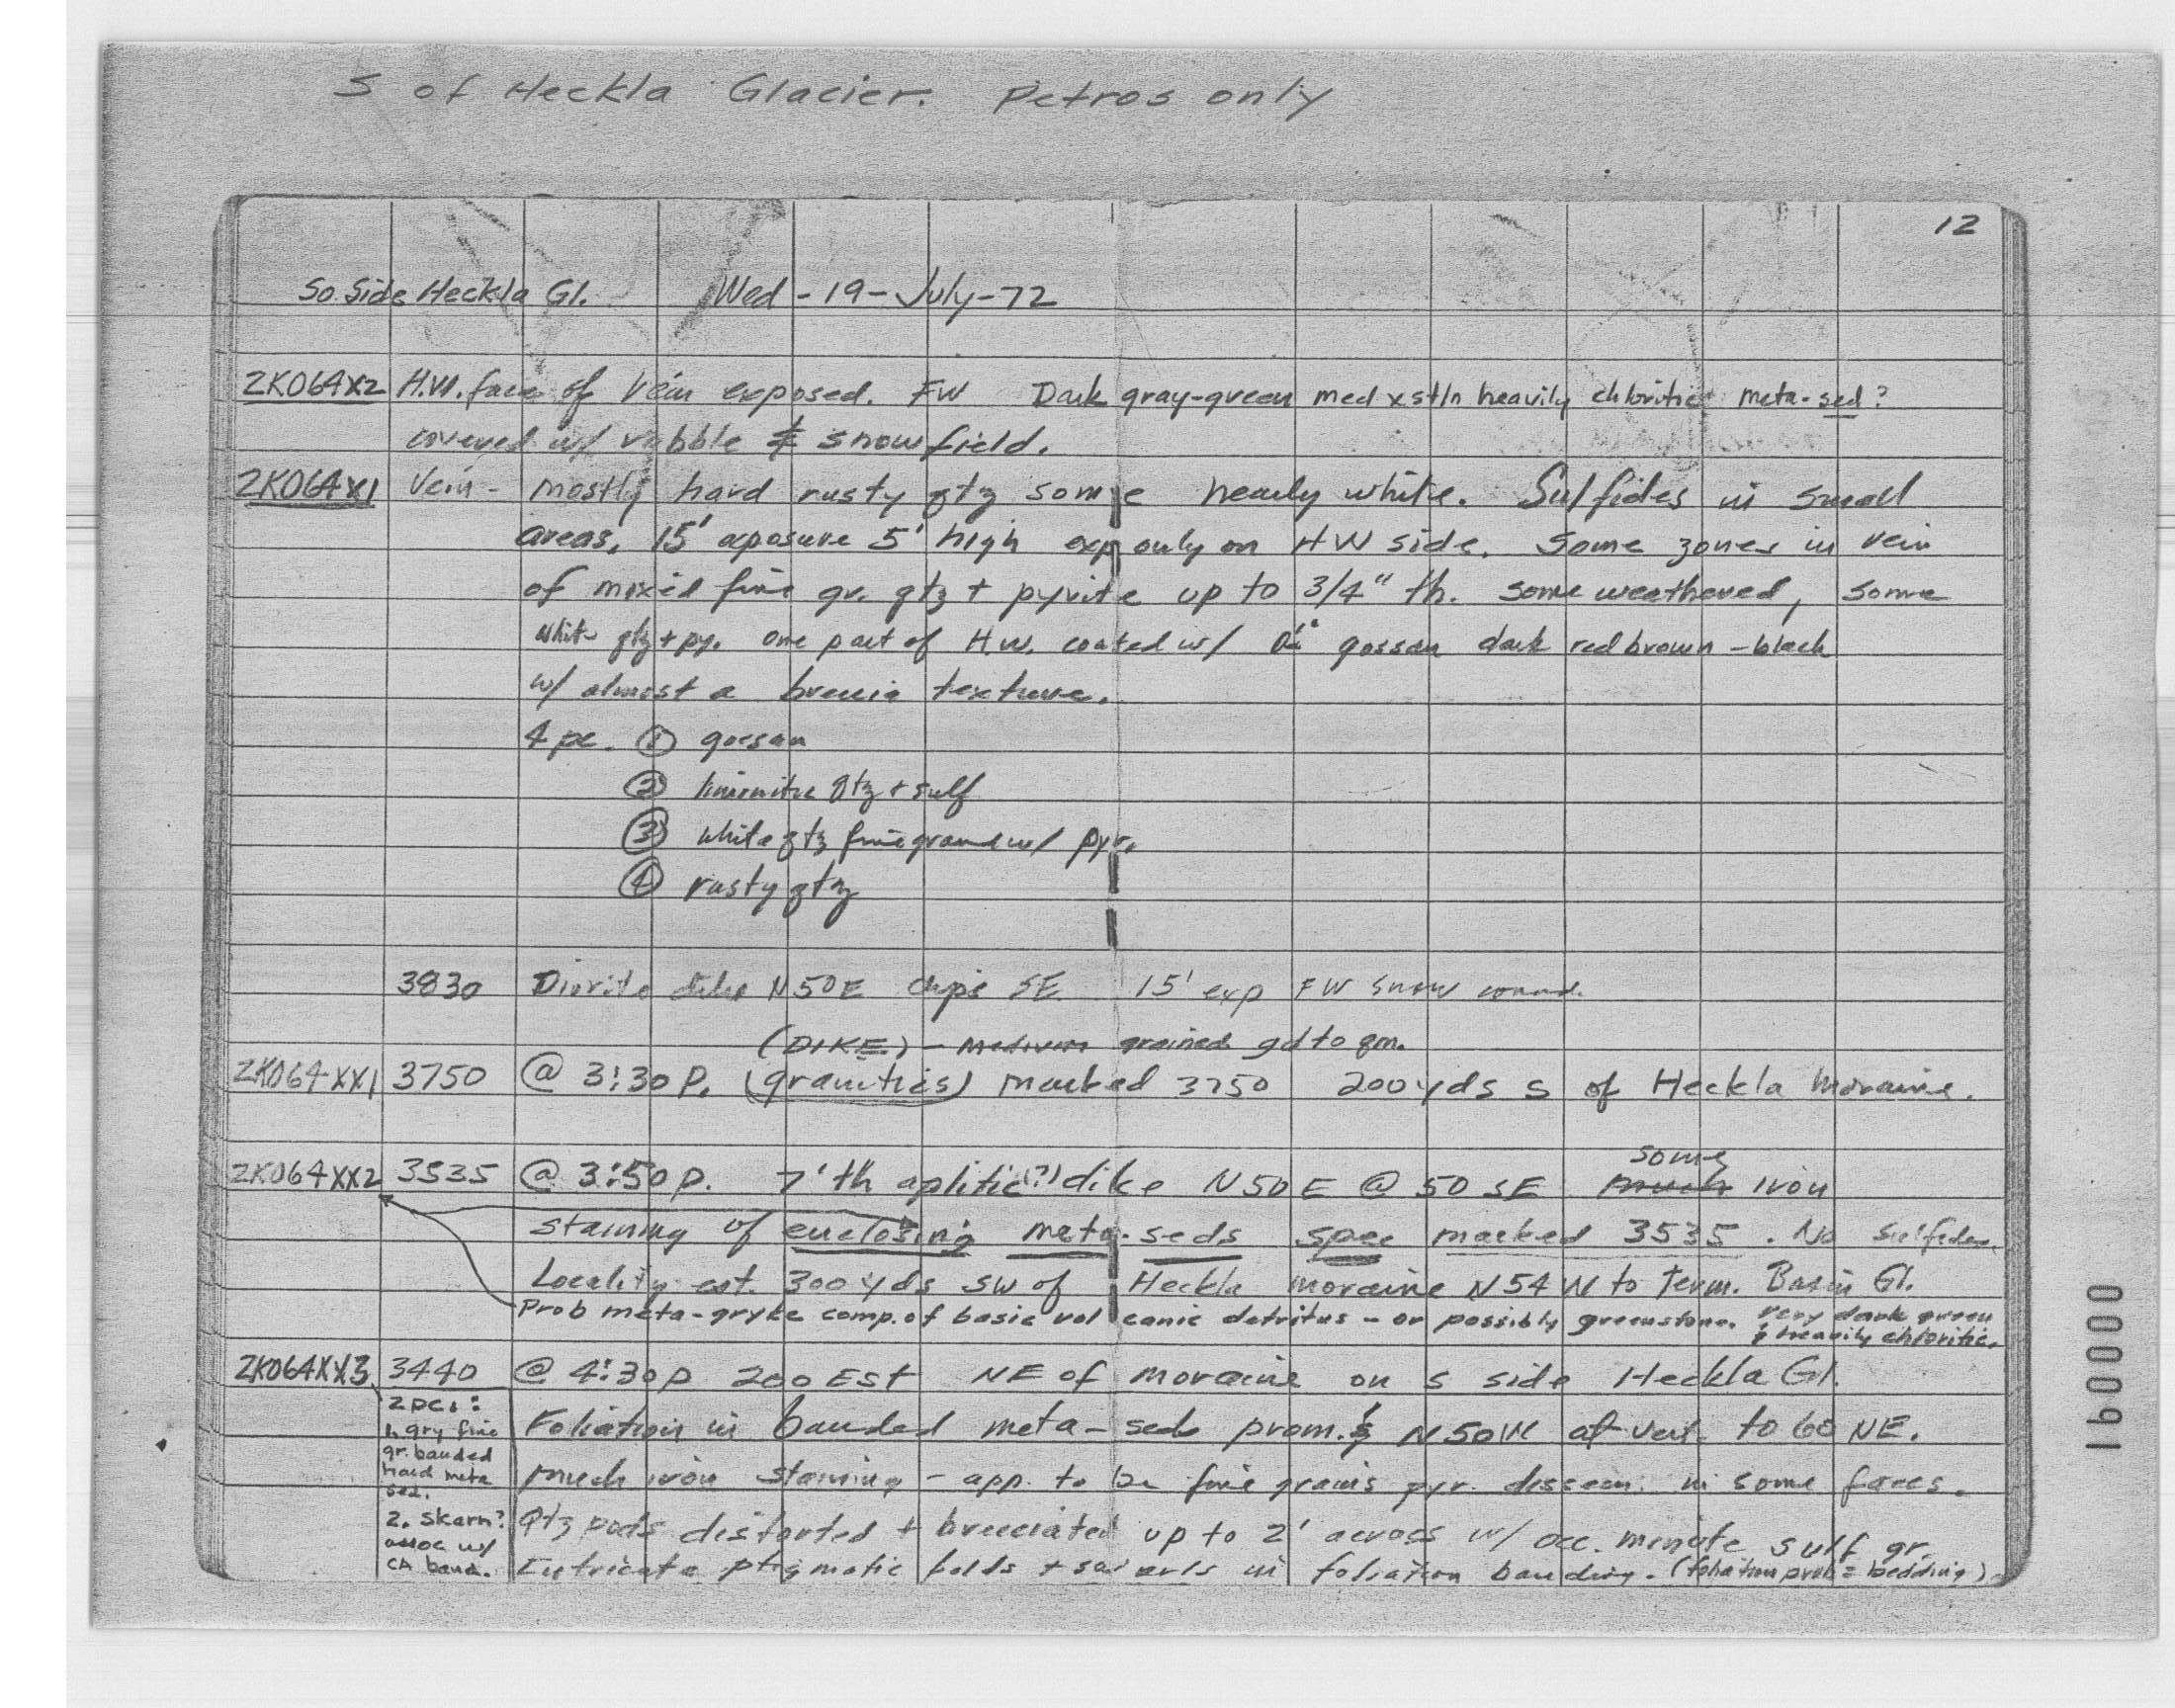 S of Heckla Glacier. Petros only
12
So. Side Heckla Gl. Wed - 19 - July - 72
ZK064X2 H.W. face of vein exposed. FW Dark gray-green med xstln heavily chloritic meta-sed?
covered w/ rubble & snowfield.
ZK064X1 Vein - mostly hard rusty qtz some nearly white. Sulfides in small
areas. 15' exposure 5' high exp only on HW side. Some zones in vein
of mixed fine gr. qtz + pyrite up to 3/4" th. some weathered, some
white qtz + py. one part of H.W. coated w/ gossan dark red brown - black
w/ almost a breccia texture.
4 pc. ① gossan
② limonitic qtz + sulf
③ white qtz fine grained w/ pyr.
④ rusty qtz
3830 Diorite dike N50E dips SE 15' exp FW snow
(DIKE) - medium grained gd to qm.
ZK064XX1 3750 @ 3:30 P. (granitics) marked 3750 200 yds S of Heckla Moraine.
some
ZK064XX2 3535 @ 3:50 P. 7' th aplitic(?) dike N50E @ 50 SE much iron
staining of enclosing meta-seds spec marked 3535. No sulfides.
Locality est. 300 yds SW of Heckla moraine N54W to Term. Basin Gl.
Prob meta-gryke comp. of basic volcanic detritus - or possibly greenstone. very dark green
& heavily chloritic.
ZK064XX3 3440 @ 4:30 P 200 Est NE of moraine on S side Heckla Gl.
2 pcs:
1. gry fine
gr. banded
hard meta
sed.
2. skarn?
assoc w/
CA band.
Foliation in banded meta-seds prom. & N50W at vert. to 60 NE.
Much iron staining - app. to be fine grains pyr. dissem. in some faces.
Qtz pods distorted + brecciated up to 2' across w/ occ. minute sulf gr.
Intricate ptigmatic folds + swirls in foliation banding. (foliation prob = bedding)
160000